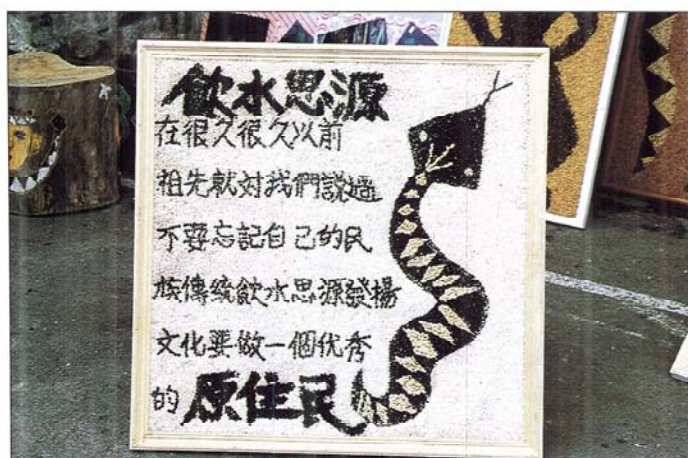 飲水思源
在很久很久以前
祖先就对我們説過
不要忘記自己的民
族傳統飲水思源發揚
文化要做一個优秀
的原住民